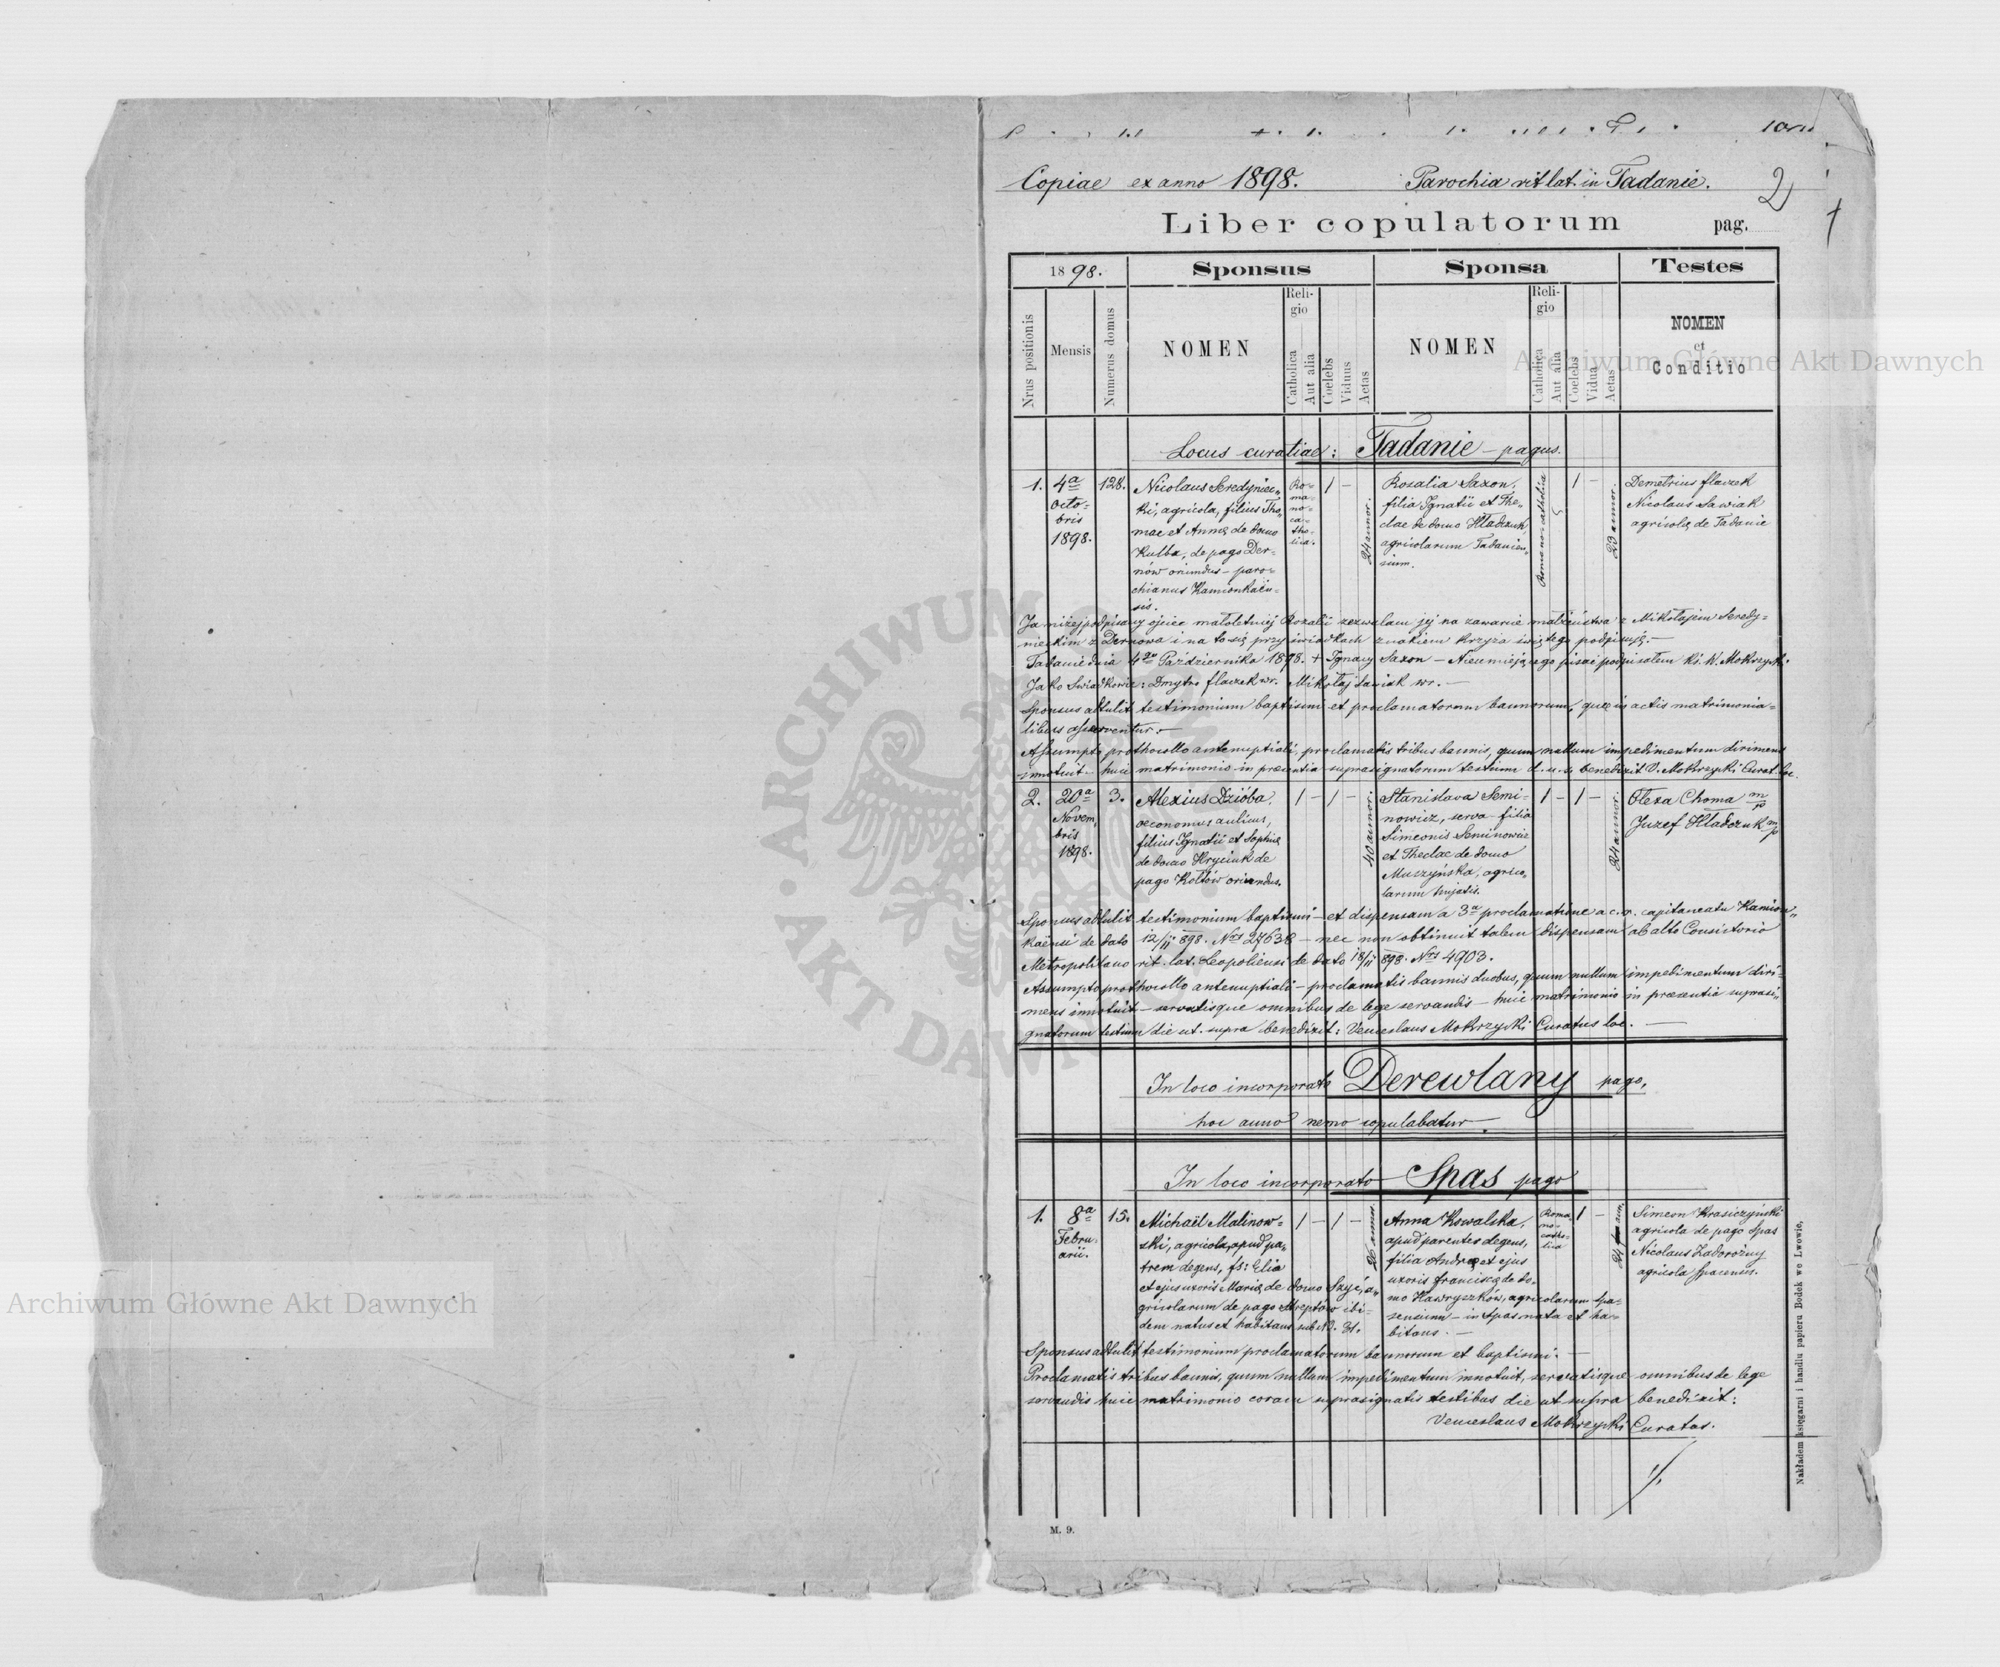 Copiae ex anno 1898. Parochia rit lat. in Tadanie. 2
Liber copulatorum pag.
1898. Sponsus Sponsa Testes
Nrus positionis
Mensis
Numerus domus
NOMEN
Religio
Catholica
Aut alia
Coelebs
Viduus
Aetas
NOMEN
Religio
Catholica
Aut alia
Coelebs
Vidua
Aetas
NOMEN
et
Conditio
Locus curatiae: Tadanie pagus.
1.
4a
Octo-
bris
1898.
128.
Nicolaus Seredyniec-
ki, agricola, filius Tho-
mae et Annę de domo
Kulba, de pago Der-
nów oriundus – paro-
chianus Kamionkaën-
sis.
Ro-
ma-
no-
ca-
tho-
lica.
1 –
24 annor.
Rozalia Saxon,
filia Ignatii et The-
clae de domo Hładczuk,
agricolarum Tadanien-
sium.
Romano-catholica
1 –
23 annor.
Demetrius flaczek
Nicolaus Sawiak
agricolę de Tadanie
Ja niżej podpisany ojciec małoletniej Rozalii zezwalam jej na zawarcie małżeństwa z Mikołajem Seredy-
nieckim z Dernowa i na to się przy świadkach znakiem krzyża świętego podpisuję. –
Tadanie dnia 4go Października 1898. + Ignacy Saxon – Nieumiejącego pisać podpisałem ks. W. Mokrzycki
Jako Świadkowie: Dmytro flaczek wr. Mikołaj Sawiak wr. –
Sponsus attulit testimonium baptismi et proclamatorum bannorum, quae in actis matrimonia-
libus asserventur. –
Assumpto prothocollo antenuptiali, proclamatis tribus bannis, quum nullum impedimentum dirimens
innotuit – huic matrimonio in praesentia suprasignatorum testium d. u. s. benedixit V. Mokrzycki Curat. loc.
2.
20a
Novem-
bris
1898.
3.
Alexius Dzióba,
oeconomus aulicus,
filius Ignatii et Sophię
de domo Hryciuk de
pago Kołtów oriundus.
1 – 1 –
40 annor.
Stanislava Semi-
nowicz, serva – filia
Simeonis Seminowicz
et Theclae de domo
Muszyńska, agrico-
larum hujatis.
1 – 1 –
24 annor.
Olexa Choma m/p
Juzef Hładczuk m/p
Sponsus attulit testimonium baptismi – et dispensam a 3a proclamatione a c. r. capitaneatu Kamion-
kaënsi de dato 12/11 898. Nrs 27638 – nec non obtinuit talem dispensam ab alto Consistorio
Metropolitano rit. lat. Leopoliensi de dato 18/11 898. Nrs 4903.
Assumpto prothocollo antenuptiali – proclamatis bannis duobus, quum nullum impedimentum diri-
mens innotuit – servatisque omnibus de lege servandis – huic matrimonio in praesentia suprasi-
gnatorum testium die ut. supra benedixit: Venceslaus Mokrzycki Curatus loc. –
In loco incorporato Derewlany pago,
hoc anno nemo copulabatur.
In loco incorporato Spas pago
1.
8a
Febru-
arii.
15.
Michaël Malinow-
ski, agricola, apud pa-
trem degens, fs: Elia
et ejus uxoris Marię de domo Szyć, a-
gricolarum de pago Streptów ibi-
dem natus et habitans sub No. 31.
1 – 1 –
26 annor.
Anna Kowalska,
apud parentes degens,
filia Andreę et ejus
uxoris franciscę de do-
mo Hawryszków, agricolarum Spa-
sensium – in Spas nata et ha-
bitans. –
Roma-
no-
catho-
lica
1 –
Simeon Krasiczyński
agricola de pago Spas
Nicolaus Zadorożny
agricola Spacensis.
Sponsus attulit testimonium proclamatorum bannorum et baptismi. –
Proclamatis tribus bannis, quum nullum impedimentum innotuit, servatisque omnibus de lege
servandis huic matrimonio coram suprasignatis testibus die ut supra benedixit:
Venceslaus Mokrzycki Curatus.
M. 9.
Nakładem księgarni i handlu papieru Bodek we Lwowie,
Archiwum Główne Akt Dawnych
Archiwum Główne Akt Dawnych
ARCHIWUM
AKT DAWNYCH